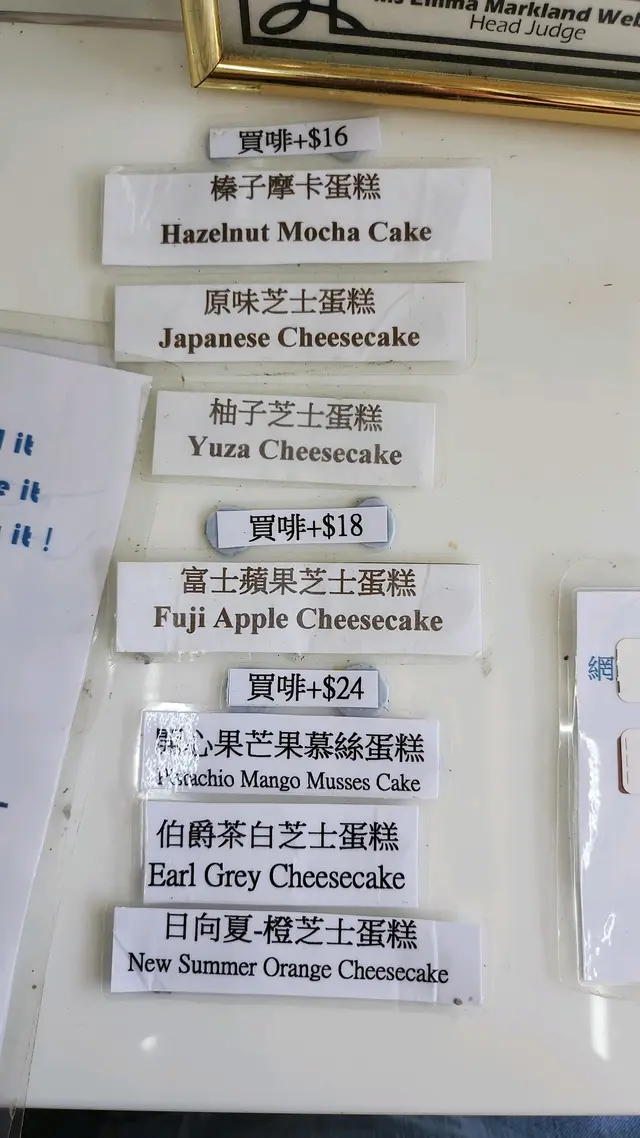 Ms Emma Markland Web
Head Judge
買啡+$16
榛子摩卡蛋糕
Hazelnut Mocha Cake
原味芝士蛋糕
Japanese Cheesecake
柚子芝士蛋糕
Yuza Cheesecake
it
it
it !
買啡+$18
富士蘋果芝士蛋糕
Fuji Apple Cheesecake
網
買啡+$24
開心果芒果慕絲蛋糕
Pistachio Mango Musses Cake
伯爵茶白芝士蛋糕
Earl Grey Cheesecake
日向夏-橙芝士蛋糕
New Summer Orange Cheesecake